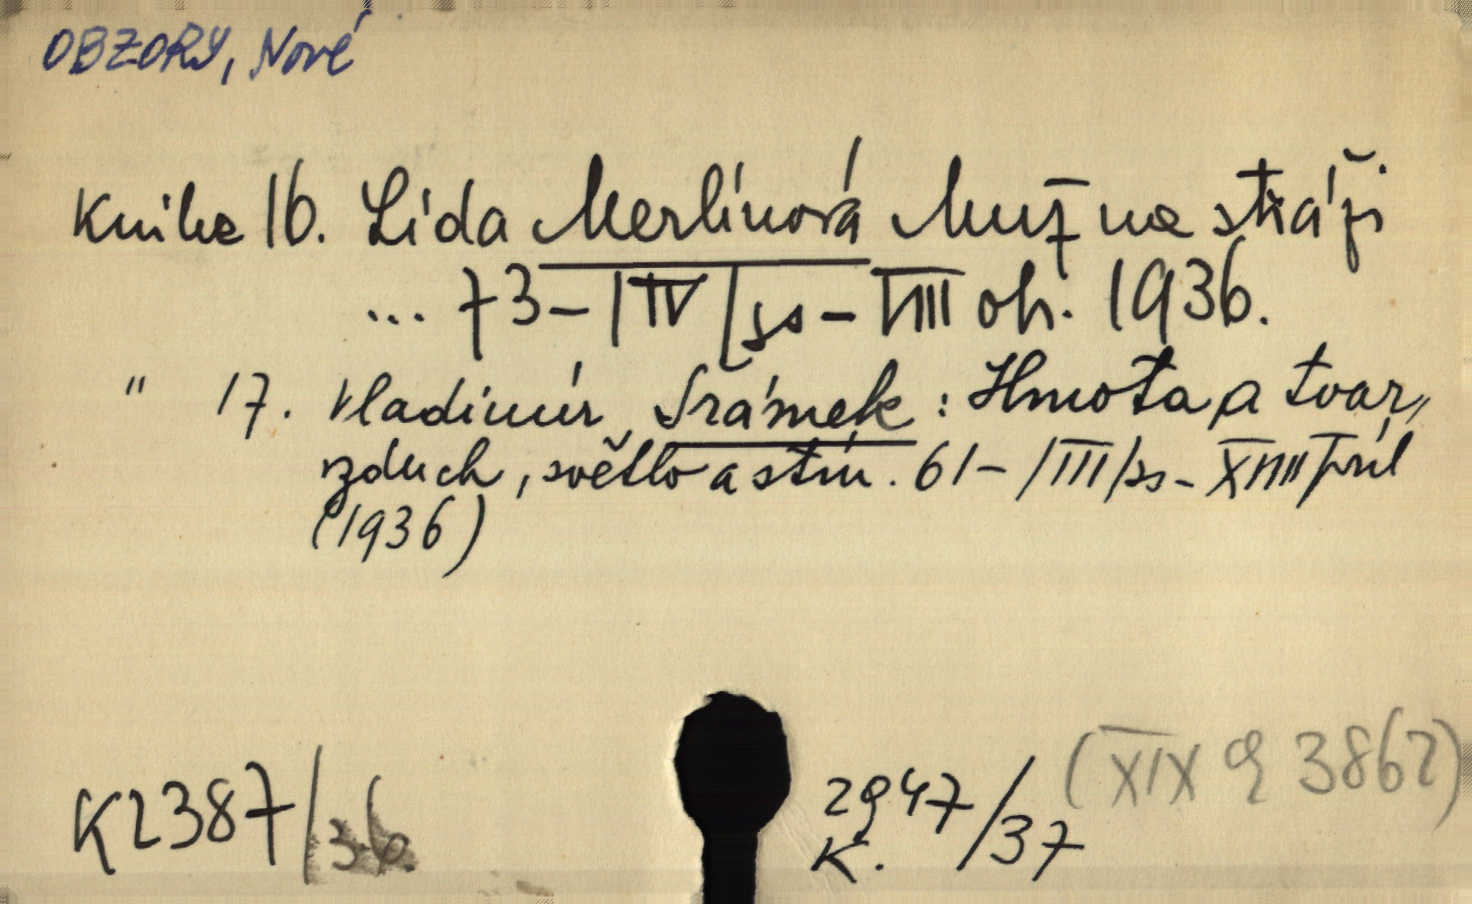 OBZORY, Nové
Kniha 16. Lída Merlínová Muž na stráži
... 73-|IV|ss-VIII ob. 1936.
" 17. Vladimír Šrámek: Hmota a tvar,
vzduch, světlo a stín. 61-|III|ss-XVIII příl
(1936)
K2387/36
2947/37
K.
(XIX q 3862)